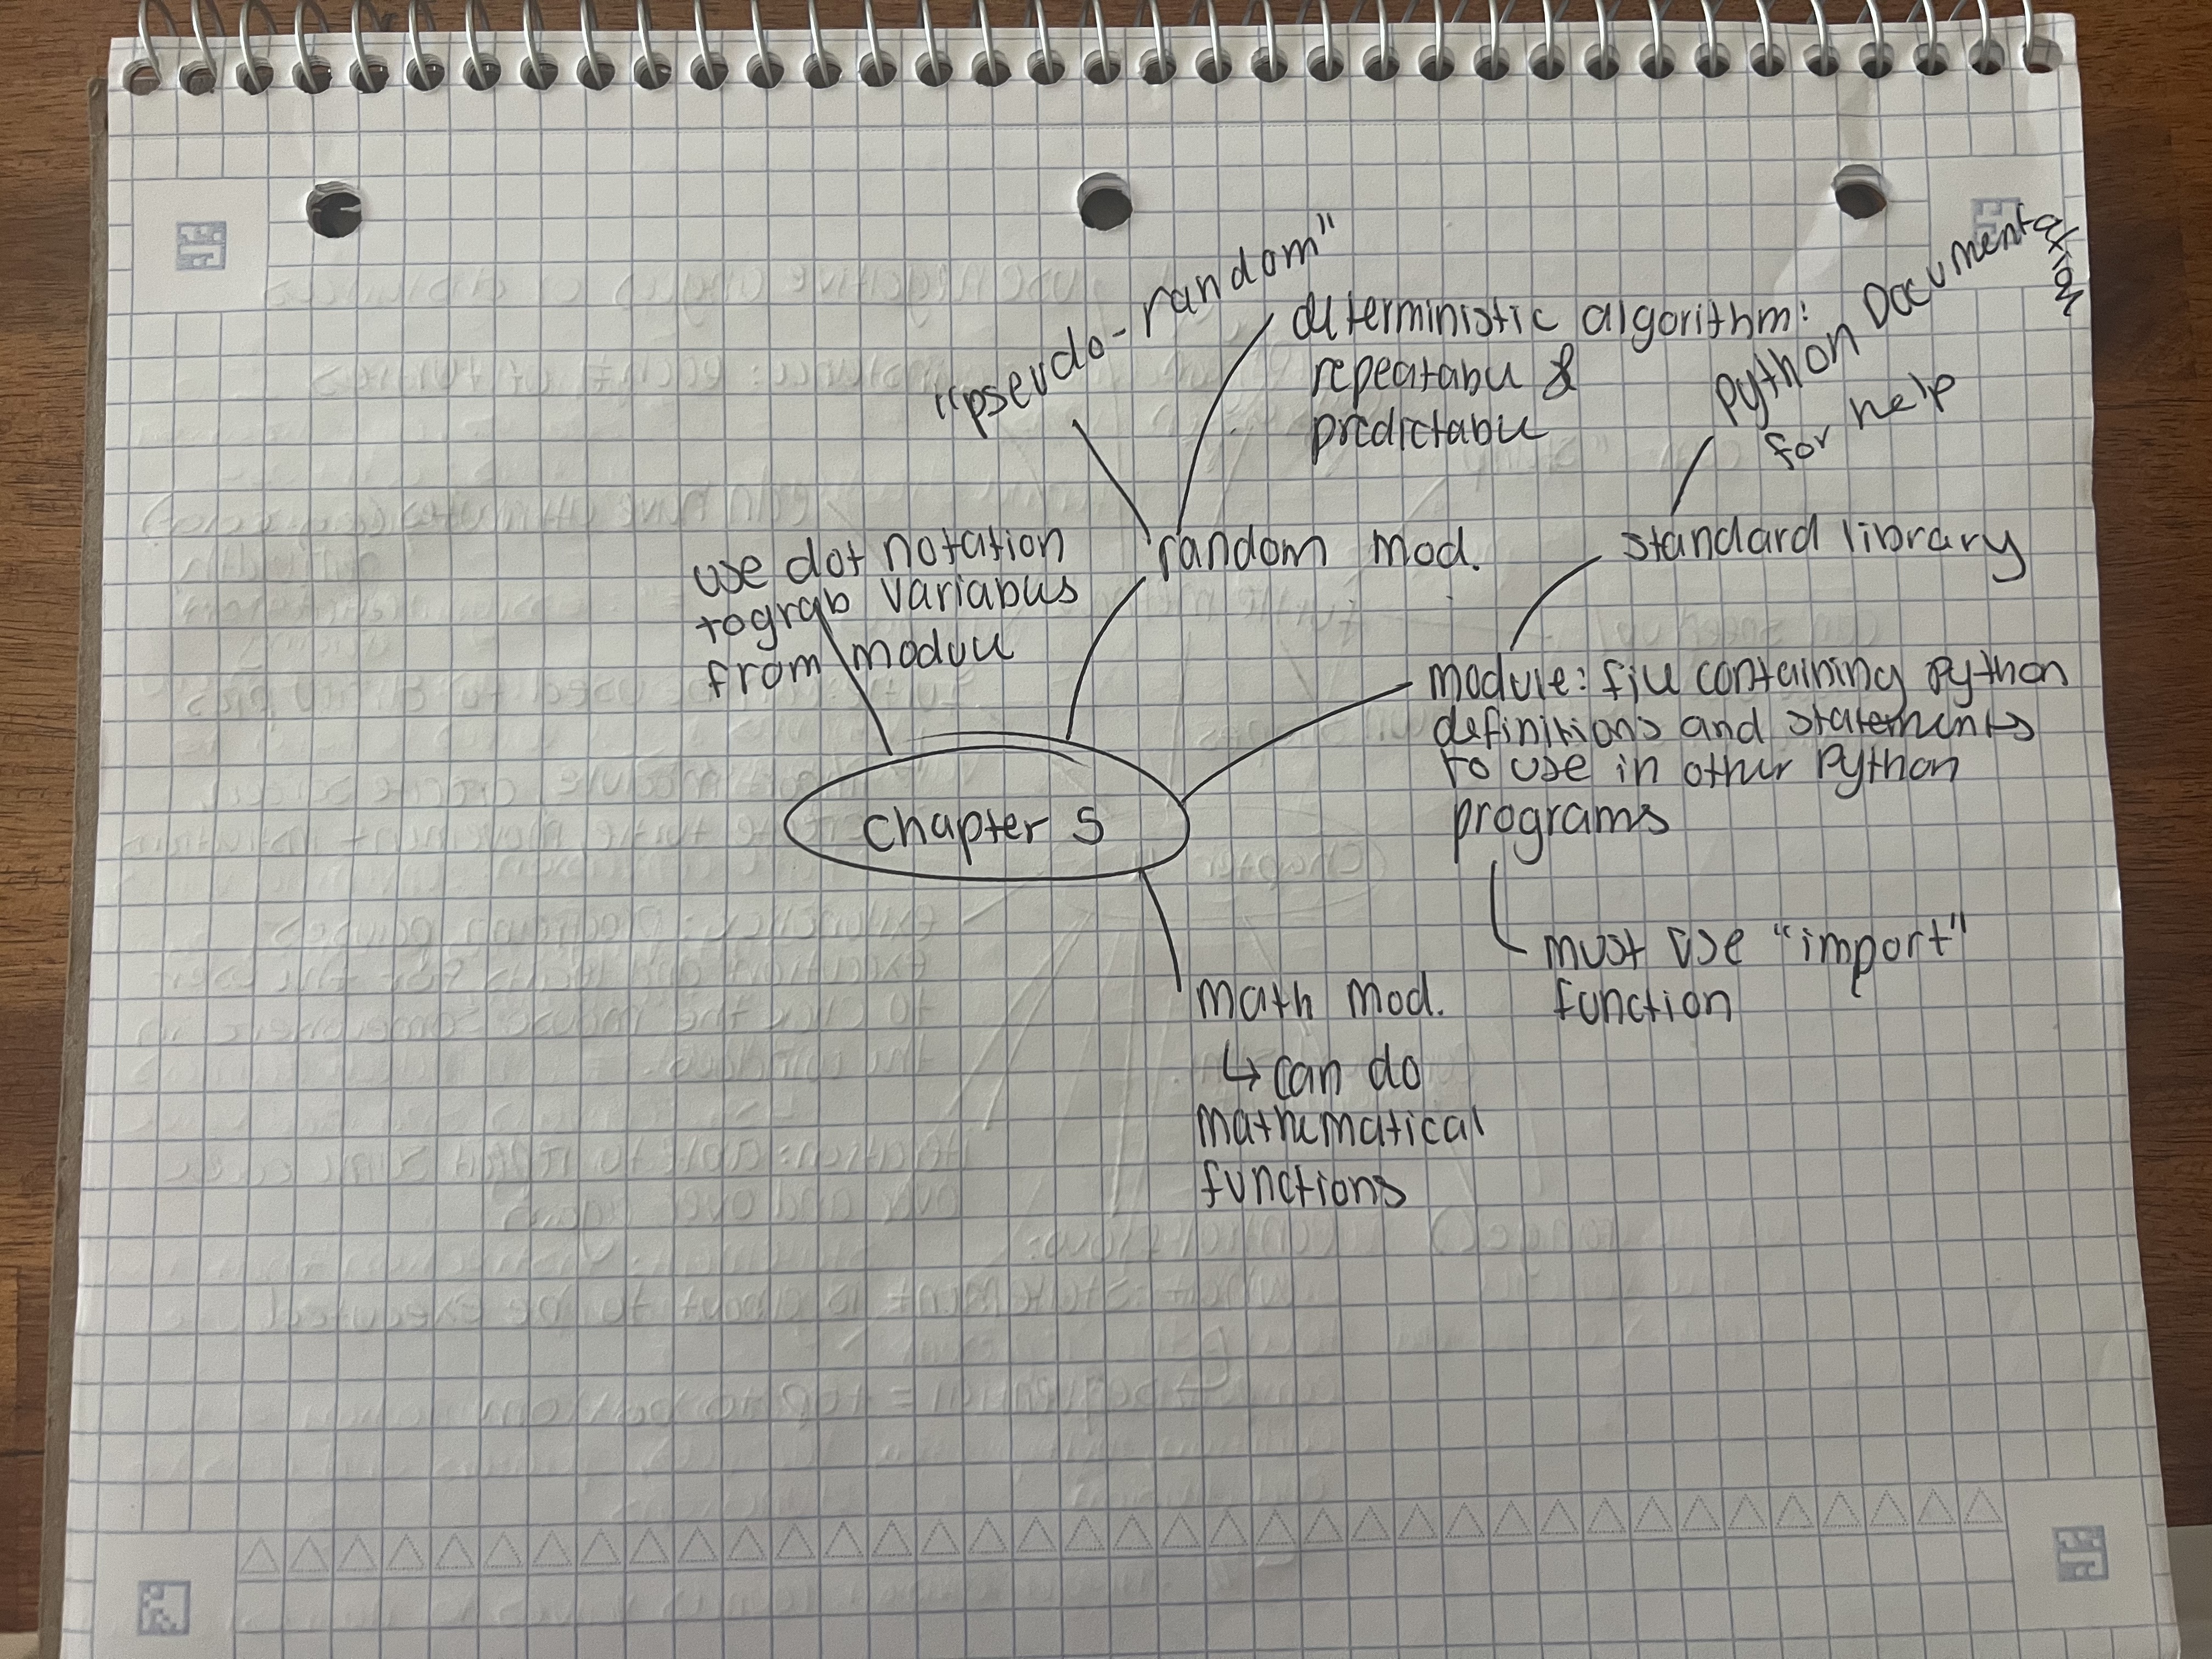 "pseudo-random"
deterministic algorithm:
repeatable &
predictable
Python Documentation
for help
use dot notation
to grab variables
from module
random mod.
standard library
Chapter 5
module: file containing python
definitions and statements
to use in other Python
programs
must use "import"
function
math mod.
↳ can do
mathematical
functions